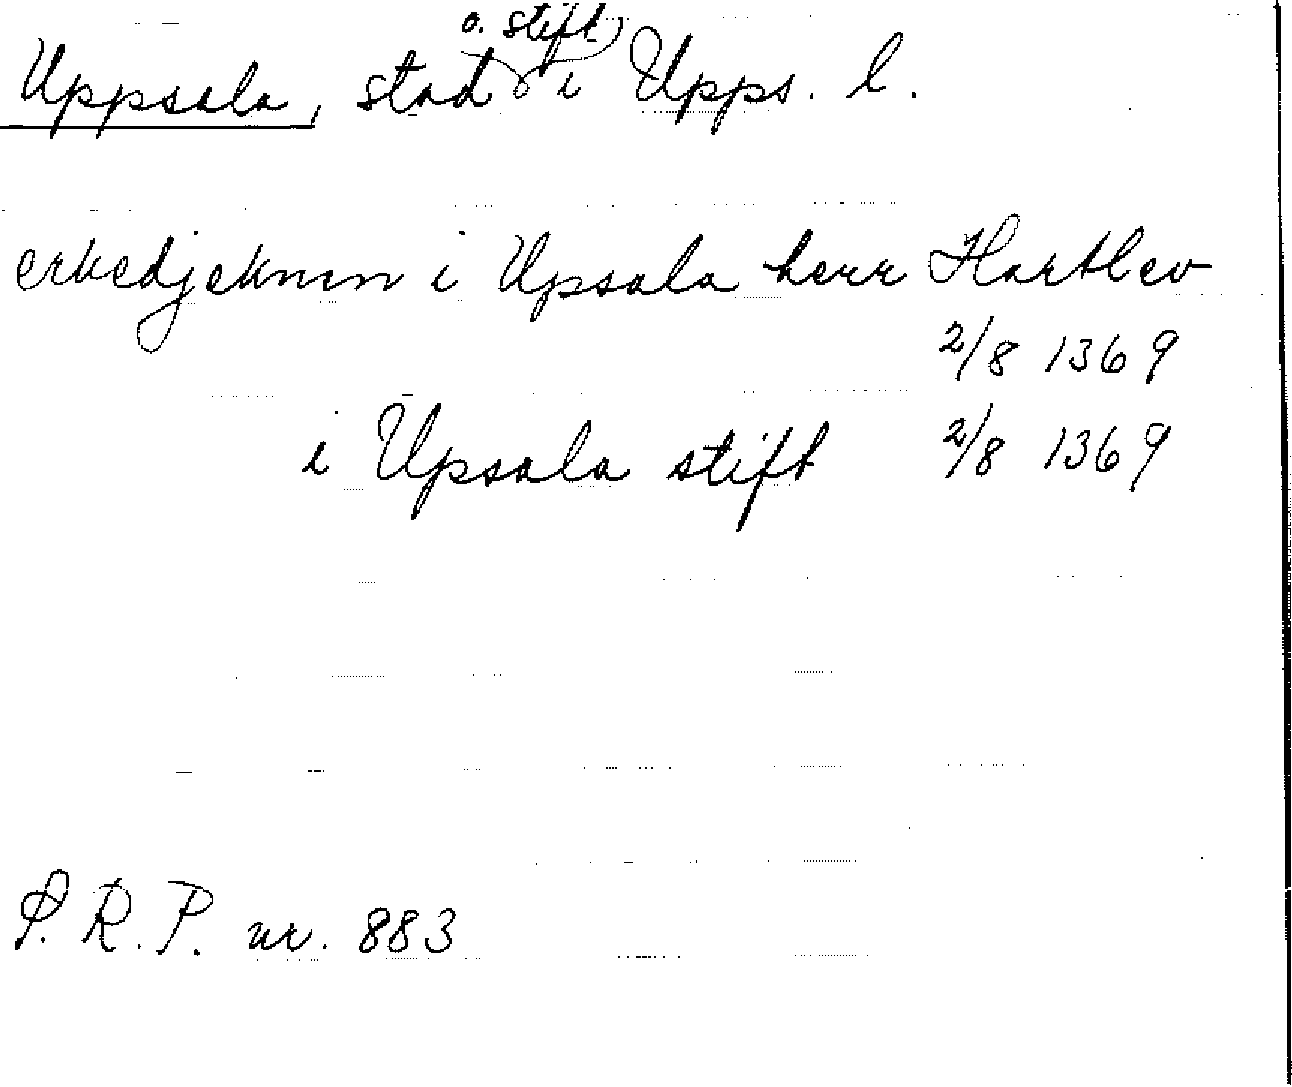 Uppsala, stad o. stift i Upps. l.
erkedjeknin i Upsala herr Hartlev
2/8 1369
i Upsala stift 2/8 1369
S. R. P. nr. 883